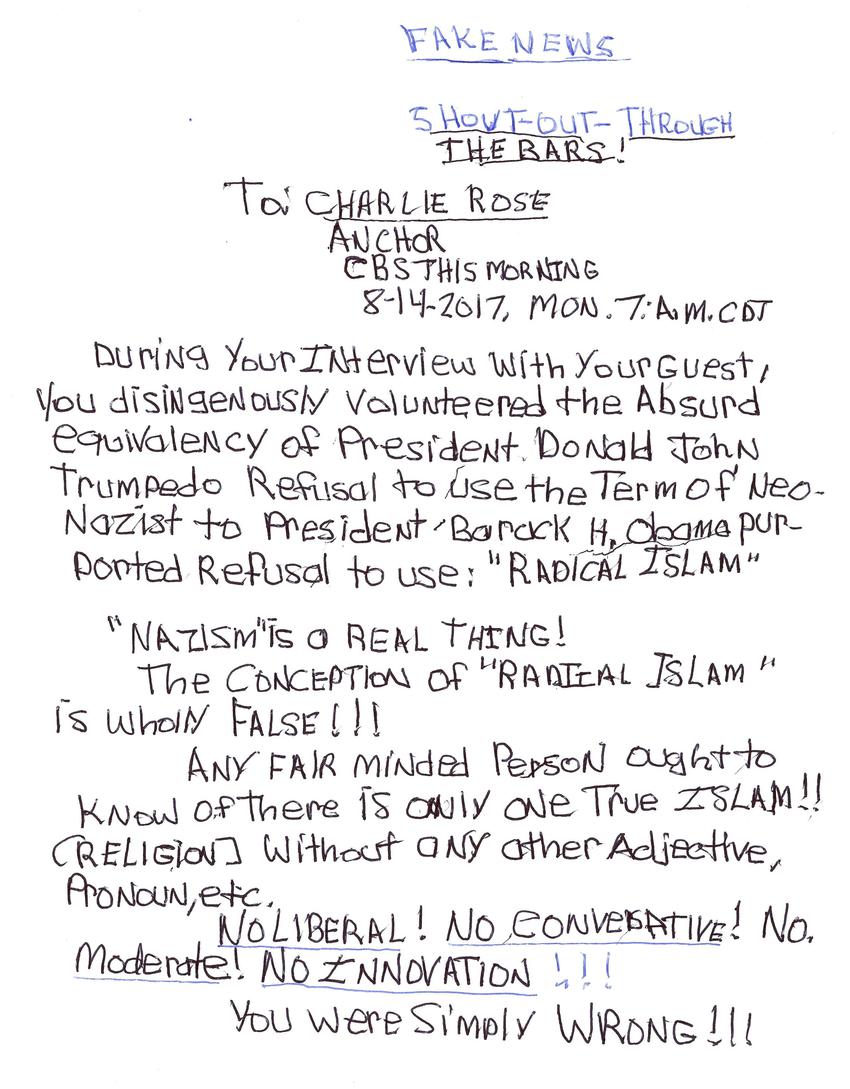 FAKE NEWS
SHOUT-OUT-THROUGH
THE BARS!
To: CHARLIE ROSE
ANCHOR
CBS THIS MORNING
8-14-2017, MON. 7: A.M. CDT
During Your INterview With Your Guest,
You disiNgeNously Volunteered the Absurd
equivaleNcy of PresideNt. DoNald JohN
Trumpedo Refusal to use the Term of Neo-
Nazist to PresideNt Barack H. Obama pur-
ported Refusal to use: "RADICAL ISLAM"
"NAZISM" is a REAL THING!
The CONCEPTION of "RADICAL ISLAM"
is wholly FALSE!!!
ANY FAIR MINDed PersoN ought to
KNow of there is only oNe True ISLAM!!
[RELIGION] Without ANY other Adjective,
PRONOUN, etc.
NO LIBERAL! NO CONVERSATIVE! No.
Moderate! NO INNOVATION !!!
You were Simply WRONG!!!